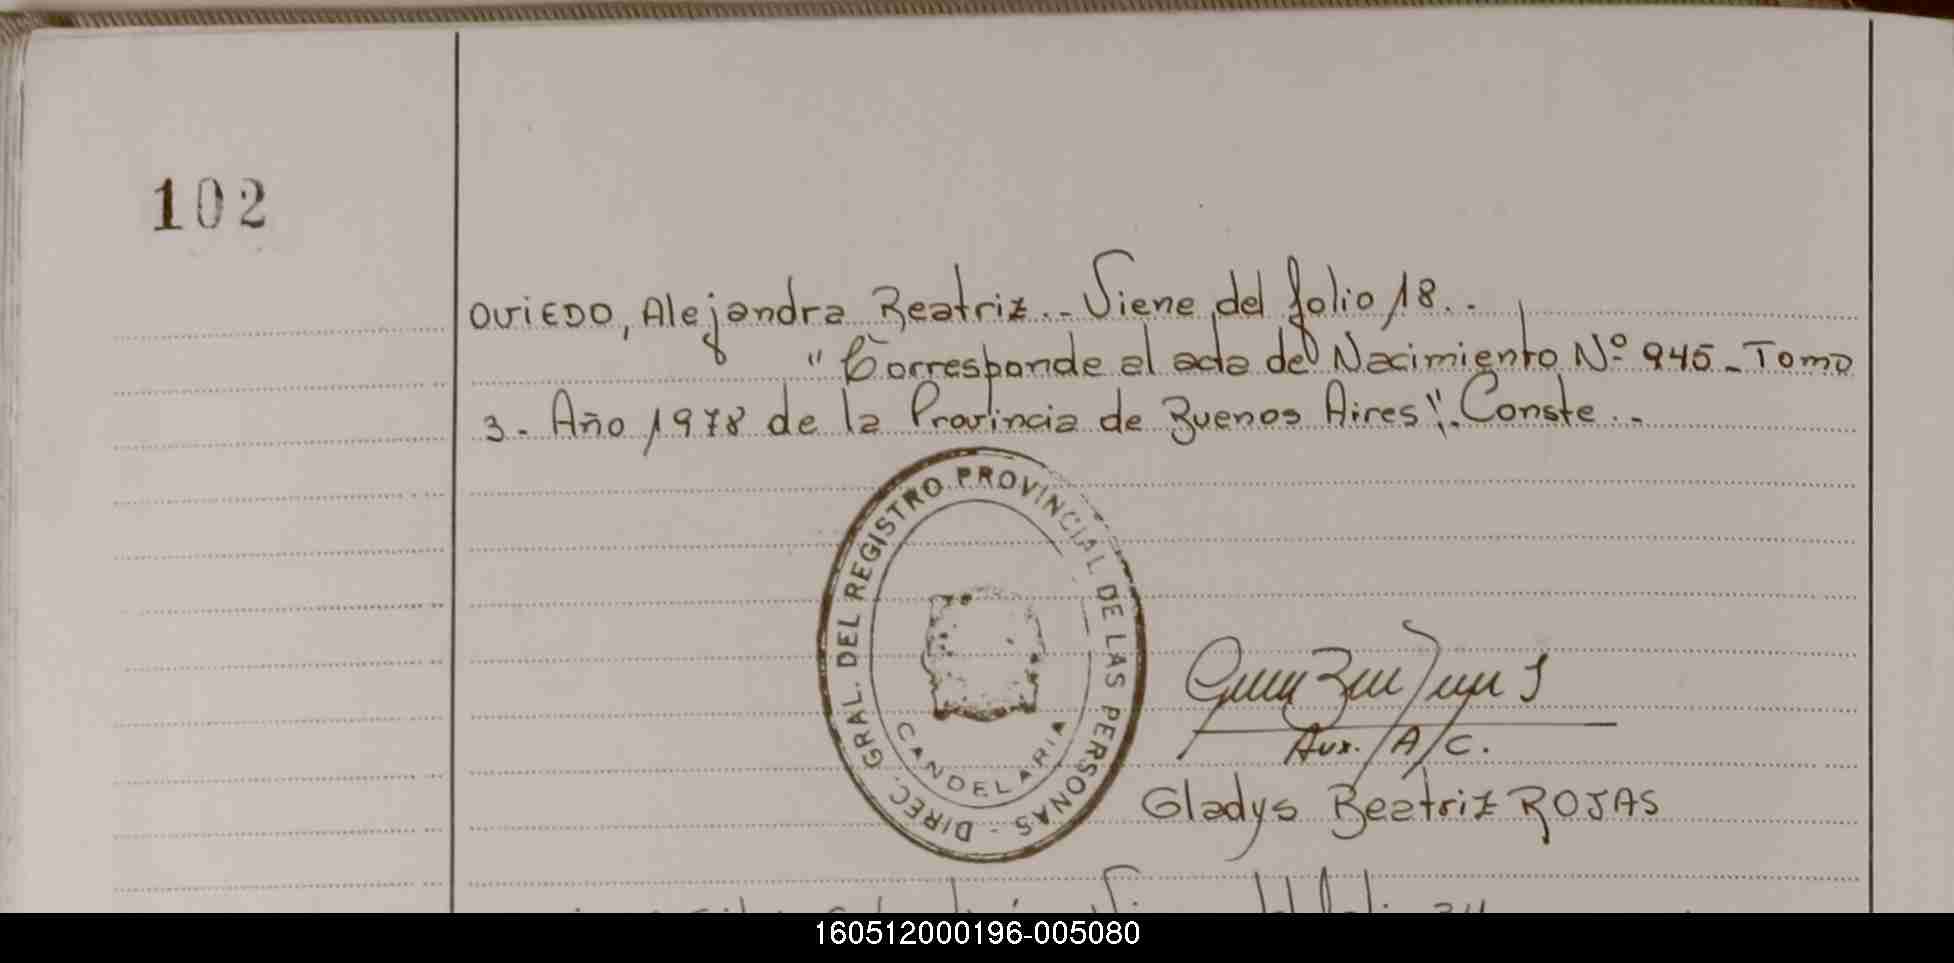 102
OVIEDO, Alejandra Beatriz.- Viene del folio 18.-
"Corresponde al acta de Nacimiento Nº 945 - Tomo
3 - Año 1978 de la Provincia de Buenos Aires". Conste.-
DIREC. GRAL. DEL REGISTRO PROVINCIAL DE LAS PERSONAS -
CANDELARIA
Aux. A/C.
Gladys Beatriz ROJAS
160512000196-005080